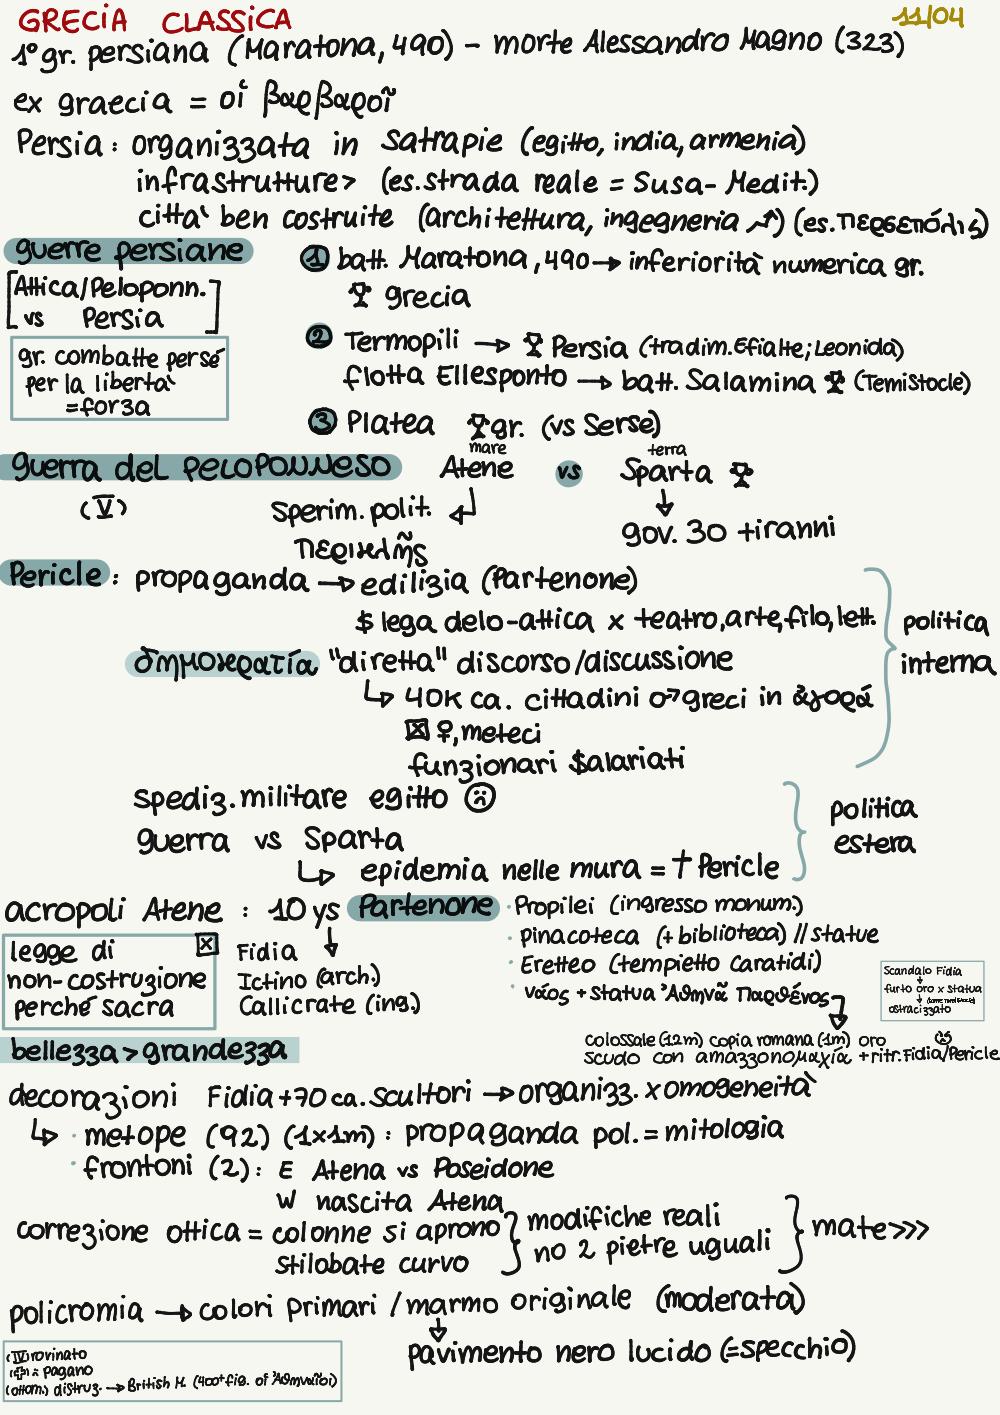 GRECIA CLASSICA 11/04
1° gr. persiana (Maratona, 490) - morte Alessandro Magno (323)
ex graecia = οἱ βαρβαροῖ
Persia: organizzata in satrapie (egitto, india, armenia)
infrastrutture> (es. strada reale = Susa-Medit.)
città ben costruite (architettura, ingegneria ↗) (es. Περσεπόλις)
guerre persiane
[Attica/Peloponn.
vs Persia]
gr. combatte persé
per la libertà
=forza
① batt. Maratona, 490 → inferiorità numerica gr.
🏆 grecia
② Termopili → 🏆 Persia (tradim. Efialte; Leonida)
flotta Ellesponto → batt. Salamina 🏆 (Temistocle)
③ Platea 🏆gr. (vs Serse)
guerra del PELOPONNESO mare Atene vs terra Sparta 🏆
(V) sperim. polit. gov. 30 tiranni
Περικλῆς
Pericle: propaganda → edilizia (Partenone)
$ lega delo-attica x teatro, arte, filo, lett.
politica
interna
δημοκρατία "diretta" discorso/discussione
↳ 40K ca. cittadini ♂ greci in ἀγορά
☒ ♀, meteci
funzionari $alariati
spediz. militare egitto ☹
guerra vs Sparta
↳ epidemia nelle mura = † Pericle
politica
estera
acropoli Atene: 10 ys Partenone
legge di ☒
non-costruzione
perché sacra
↓
Fidia
Ictino (arch.)
Callicrate (ing.)
· Propilei (ingresso monum.)
· pinacoteca (+ biblioteca) // statue
· Eretteo (tempietto caratidi)
· νάος + statua Ἀθηνᾶ Παρθένος
Scandalo Fidia
↓
furto oro x statua
↓
ostracizzato
colossale (12m) copia romana (1m) oro ☹
scudo con amazzonομαχία + ritr. Fidia/Pericle
bellezza > grandezza
decorazioni Fidia + 70 ca. scultori → organizz. x omogeneità
↳ · metope (92) (1x1m): propaganda pol. = mitologia
· frontoni (2): E Atena vs Poseidone
W nascita Atena
correzione ottica = colonne si aprono
stilobate curvo
modifiche reali
no 2 pietre uguali
mate>>>
policromia → colori primari / marmo originale (moderata)
↓
pavimento nero lucido (=specchio)
(IV) rovinato
: pagano
(ottom.) distruz. → British M. (400+ fig. of Ἀθηναῖοι)